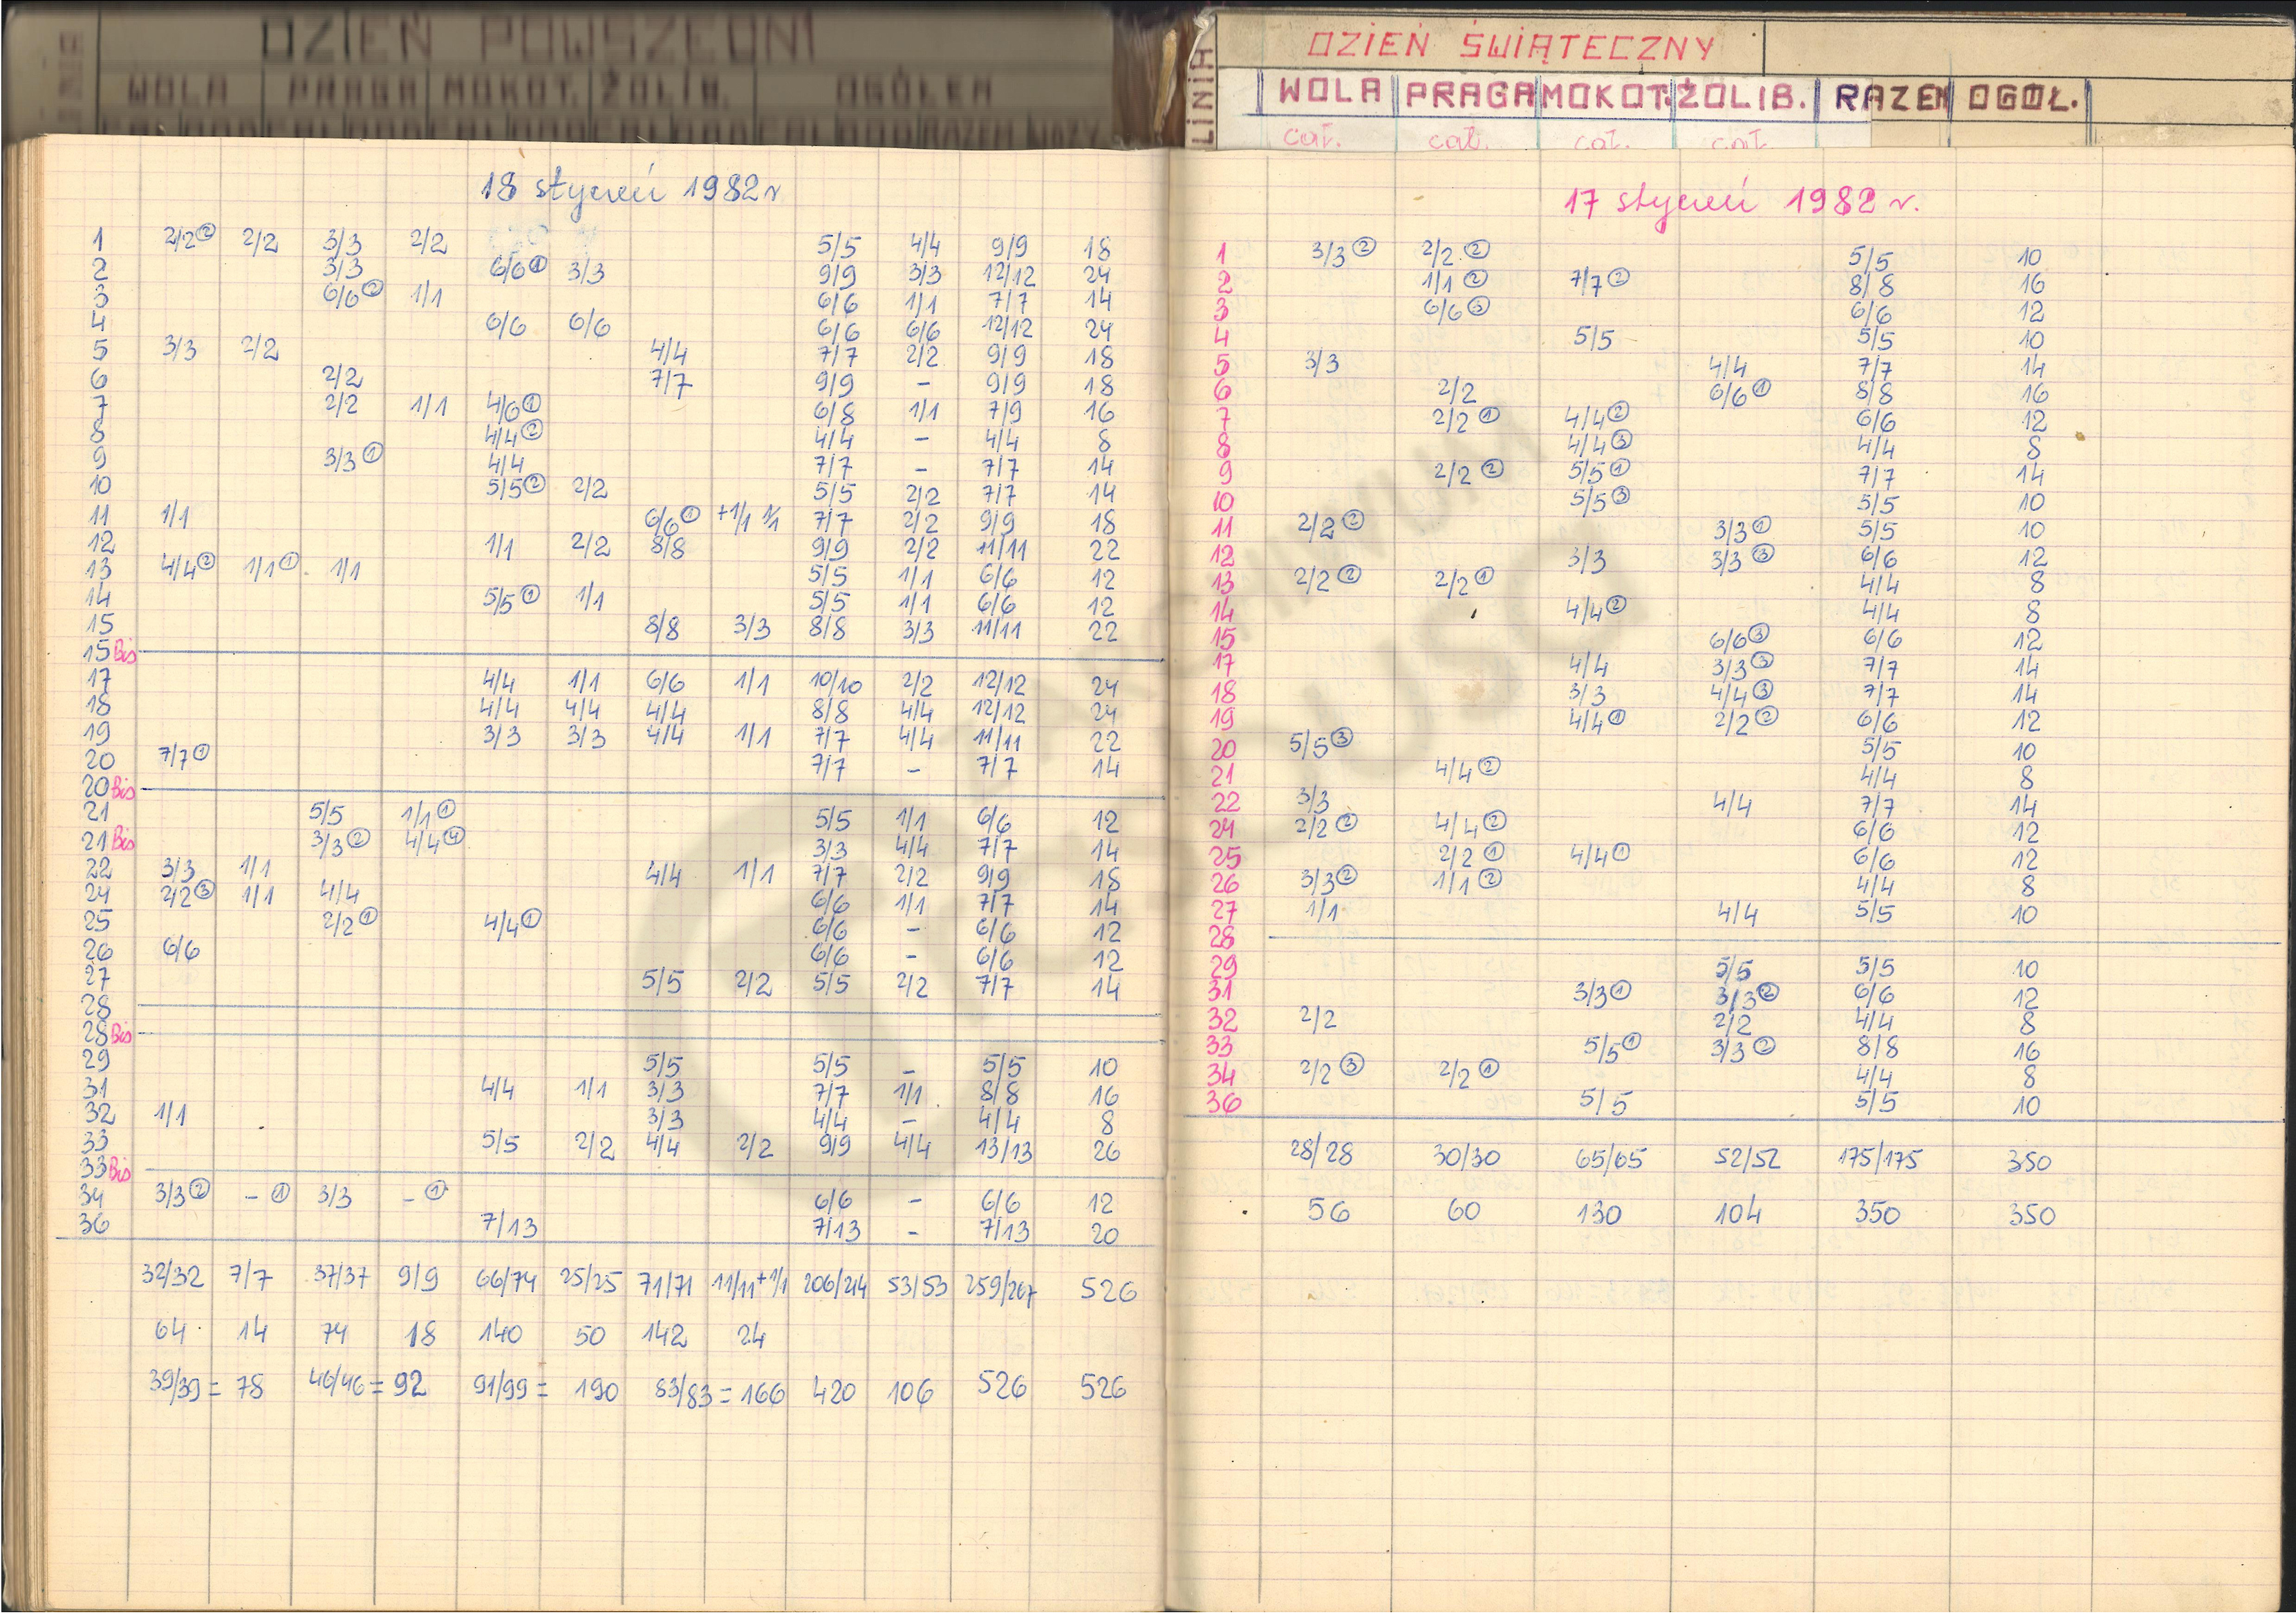 DZIEŃ POWSZEDNI
WOLA PRAGA MOKOT. ŻOLIB. OGÓŁEM
18 styczeń 1982r
1 2/2② 2/2 3/3 2/2 5/5 4/4 9/9 18
2 3/3 6/6① 3/3 9/9 3/3 12/12 24
3 6/6② 1/1 6/6 1/1 7/7 14
4 6/6 6/6 6/6 6/6 12/12 24
5 3/3 2/2 4/4 7/7 2/2 9/9 18
6 2/2 7/7 9/9 - 9/9 18
7 2/2 1/1 4/6① 6/8 1/1 7/9 16
8 4/4② 4/4 - 4/4 8
9 3/3① 4/4 7/7 - 7/7 14
10 5/5② 2/2 5/5 2/2 7/7 14
11 1/1 6/6① +1/1 1/1 7/7 2/2 9/9 18
12 1/1 2/2 8/8 9/9 2/2 11/11 22
13 4/4② 1/1① 1/1 5/5 1/1 6/6 12
14 5/5① 1/1 5/5 1/1 6/6 12
15 8/8 3/3 8/8 3/3 11/11 22
15 Bis
17 4/4 1/1 6/6 1/1 10/10 2/2 12/12 24
18 4/4 4/4 4/4 8/8 4/4 12/12 24
19 3/3 3/3 4/4 1/1 7/7 4/4 11/11 22
20 7/7① 7/7 - 7/7 14
20 Bis
21 5/5 1/1① 5/5 1/1 6/6 12
21 Bis 3/3② 4/4④ 3/3 4/4 7/7 14
22 3/3 1/1 4/4 1/1 7/7 2/2 9/9 18
24 2/2③ 1/1 4/4 6/6 1/1 7/7 14
25 2/2① 4/4① 6/6 - 6/6 12
26 6/6 6/6 - 6/6 12
27 5/5 2/2 5/5 2/2 7/7 14
28
28 Bis
29 5/5 5/5 - 5/5 10
31 4/4 1/1 3/3 7/7 1/1 8/8 16
32 1/1 3/3 4/4 - 4/4 8
33 5/5 2/2 4/4 2/2 9/9 4/4 13/13 26
33 Bis
34 3/3② - ① 3/3 - ① 6/6 - 6/6 12
36 7/13 7/13 - 7/13 20
32/32 7/7 37/37 9/9 66/74 25/25 71/71 11/11+1/1 206/214 53/53 259/267 526
64 14 74 18 140 50 142 24
39/39 = 78 46/46 = 92 91/99 = 190 83/83 = 166 420 106 526 526
LINIA
DZIEŃ ŚWIĄTECZNY
WOLA PRAGA MOKOT. ŻOLIB. RAZEM OGÓŁ.
cał. cał. cał. cał.
17 styczeń 1982 r.
1 3/3② 2/2② 5/5 10
2 1/1② 7/7② 8/8 16
3 6/6③ 6/6 12
4 5/5 5/5 10
5 3/3 4/4 7/7 14
6 2/2 6/6① 8/8 16
7 2/2① 4/4② 6/6 12
8 4/4③ 4/4 8
9 2/2② 5/5① 7/7 14
10 5/5③ 5/5 10
11 2/2② 3/3① 5/5 10
12 3/3 3/3③ 6/6 12
13 2/2② 2/2① 4/4 8
14 4/4② 4/4 8
15 6/6③ 6/6 12
17 4/4 3/3③ 7/7 14
18 3/3 4/4③ 7/7 14
19 4/4① 2/2② 6/6 12
20 5/5③ 5/5 10
21 4/4② 4/4 8
22 3/3 4/4 7/7 14
24 2/2② 4/4② 6/6 12
25 2/2① 4/4① 6/6 12
26 3/3② 1/1② 4/4 8
27 1/1 4/4 5/5 10
28
29 5/5 5/5 10
31 3/3① 3/3② 6/6 12
32 2/2 2/2 4/4 8
33 5/5① 3/3② 8/8 16
34 2/2③ 2/2① 4/4 8
36 5/5 5/5 10
28/28 30/30 65/65 52/52 175/175 350
56 60 130 104 350 350